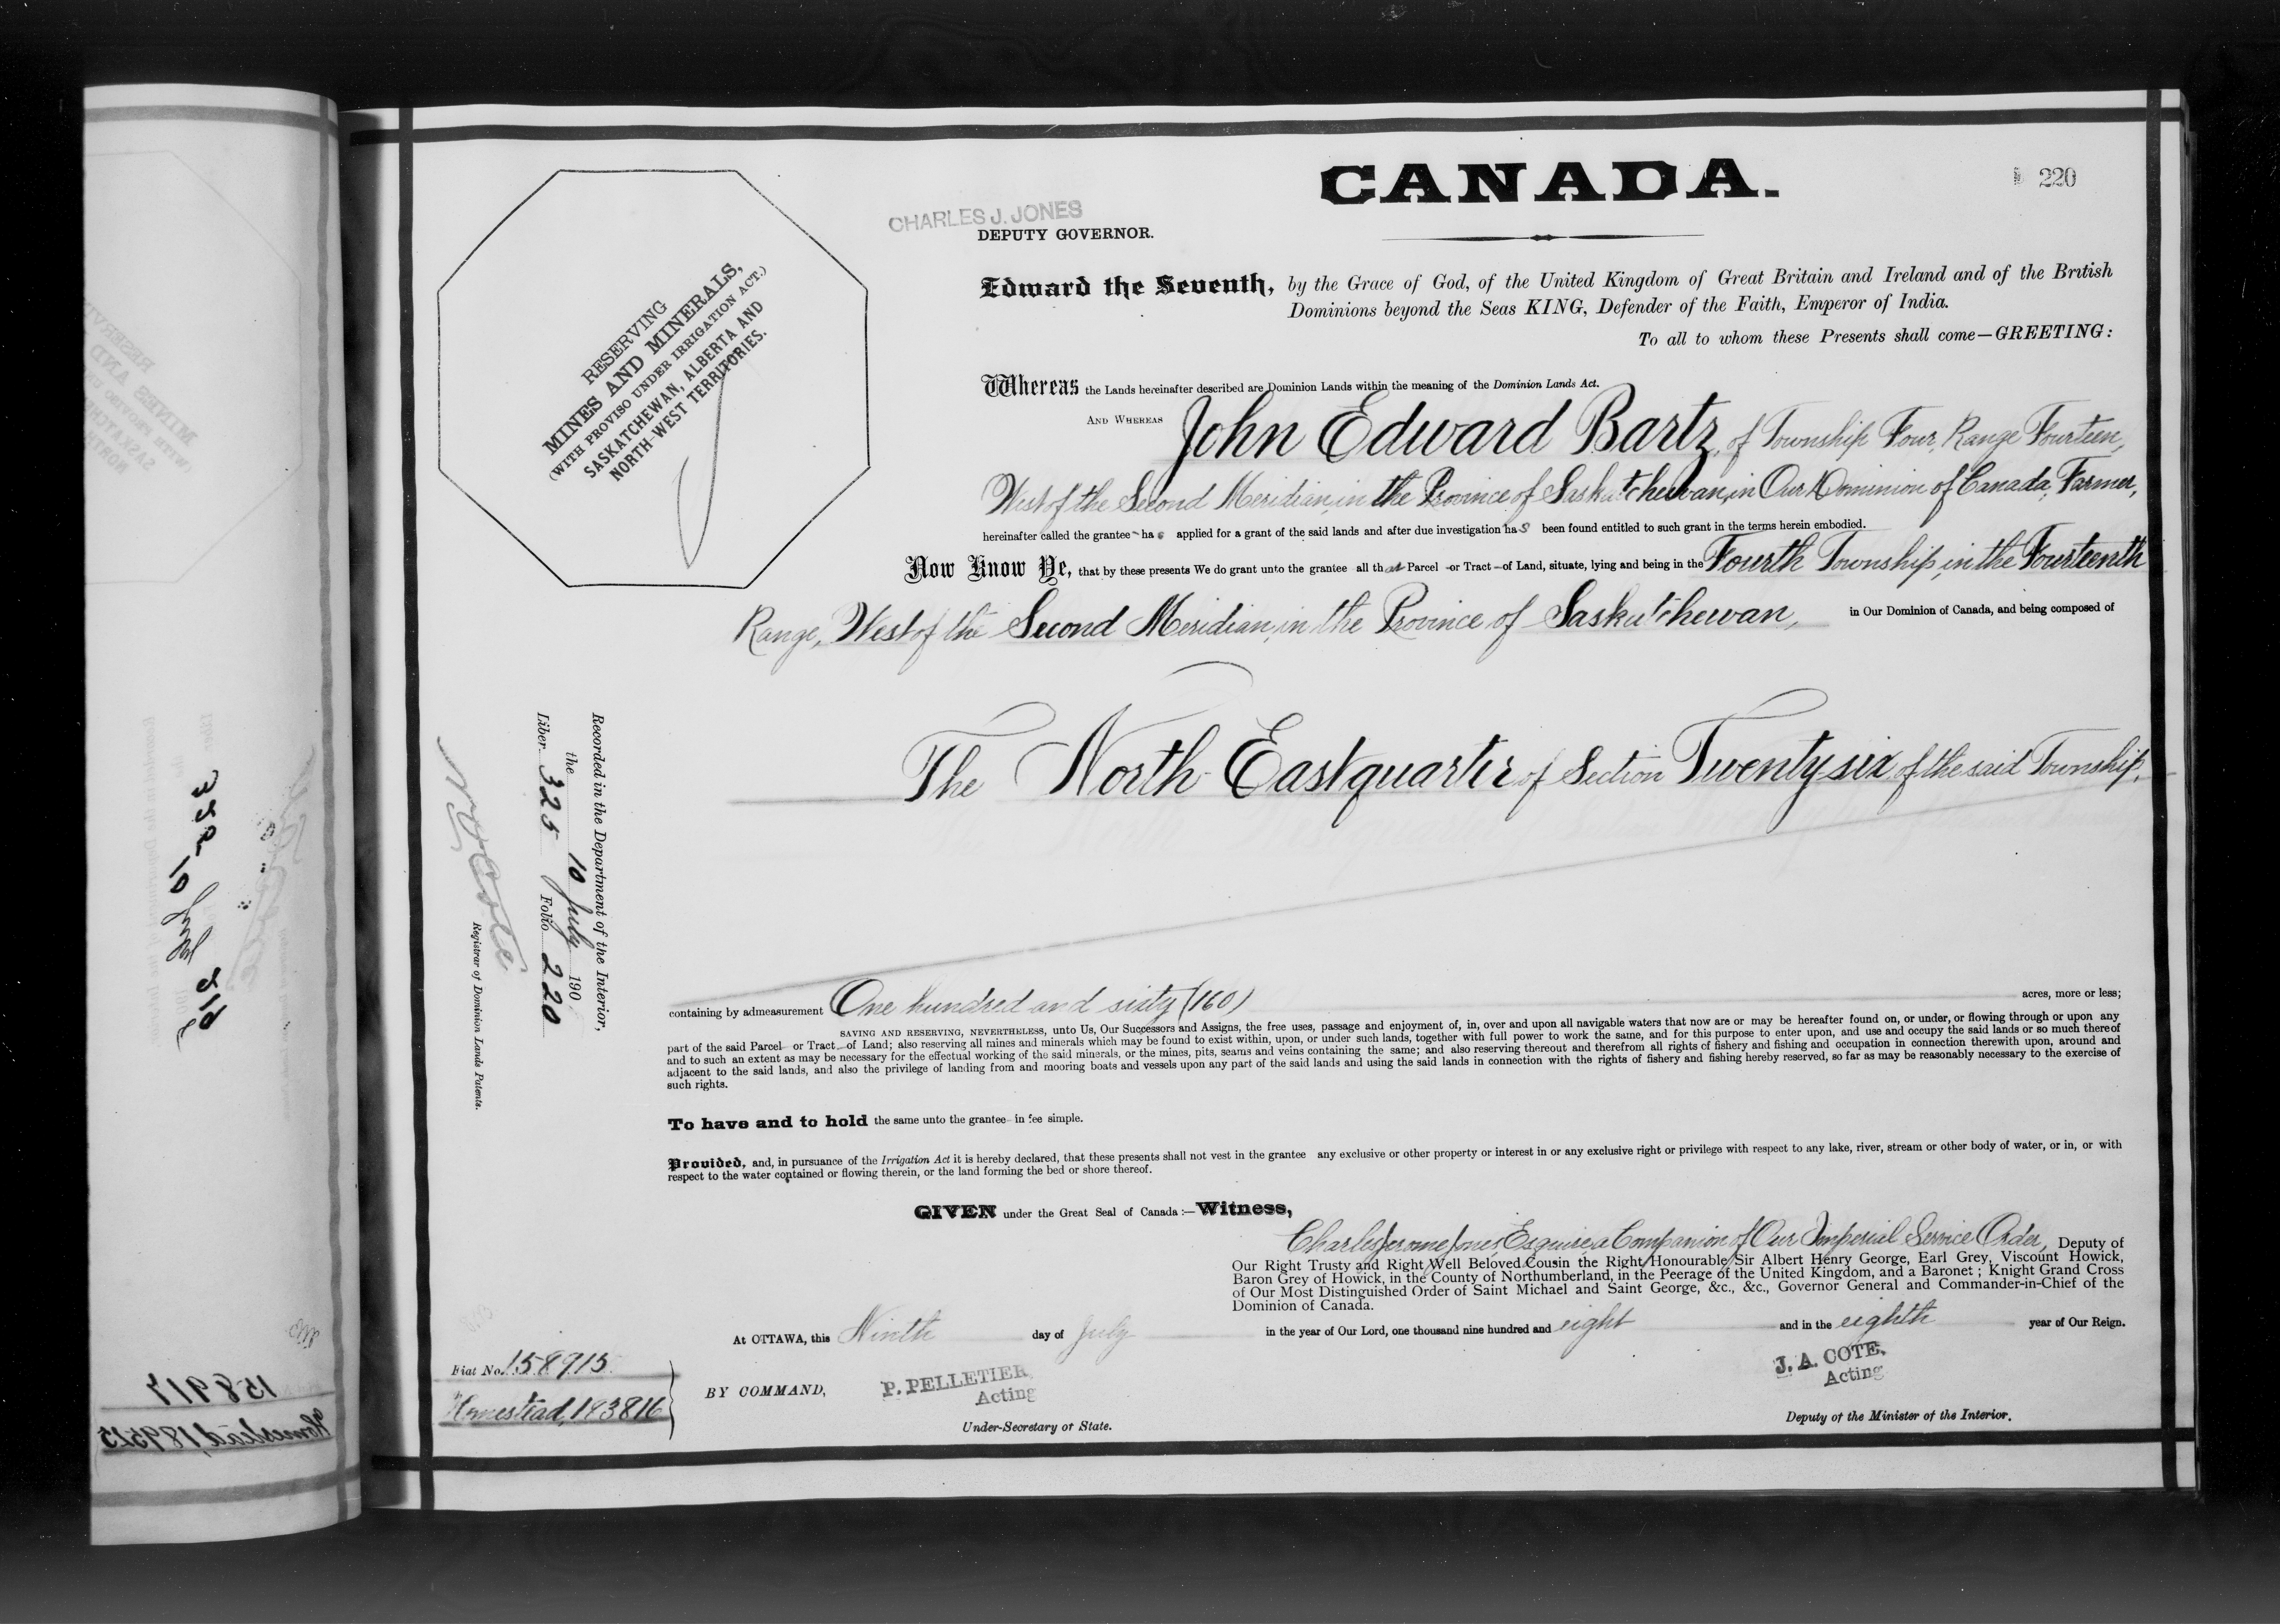 CANADA.
220
CHARLES J. JONES
DEPUTY GOVERNOR.
RESERVING
MINES AND MINERALS,
(WITH PROVISO UNDER IRRIGATION ACT.)
SASKATCHEWAN, ALBERTA AND
NORTH-WEST TERRITORIES.
Edward the Seventh, by the Grace of God, of the United Kingdom of Great Britain and Ireland and of the British
Dominions beyond the Seas KING, Defender of the Faith, Emperor of India.
To all to whom these Presents shall come—GREETING:
Whereas the Lands hereinafter described are Dominion Lands within the meaning of the Dominion Lands Act.
AND WHEREAS John Edward Bartz, of Township Four, Range Fourteen,
West of the Second Meridian, in the Province of Saskatchewan, in Our Dominion of Canada, Farmer,
hereinafter called the grantee has applied for a grant of the said lands and after due investigation has been found entitled to such grant in the terms herein embodied.
Now Know Ye, that by these presents We do grant unto the grantee all that Parcel or Tract of Land, situate, lying and being in the Fourth Township, in the Fourteenth
Range, West of the Second Meridian, in the Province of Saskatchewan, in Our Dominion of Canada, and being composed of
The North East quarter of Section Twenty six of the said Township.
Recorded in the Department of the Interior,
the 10 July 190
Liber 325 Folio 220
Registrar of Dominion Lands Patents.
containing by admeasurement One hundred and sixty (160) acres, more or less;
SAVING AND RESERVING, NEVERTHELESS, unto Us, Our Successors and Assigns, the free uses, passage and enjoyment of, in, over and upon all navigable waters that now are or may be hereafter found on, or under, or flowing through or upon any
part of the said Parcel or Tract of Land; also reserving all mines and minerals which may be found to exist within, upon, or under such lands, together with full power to work the same, and for this purpose to enter upon, and use and occupy the said lands or so much thereof
and to such an extent as may be necessary for the effectual working of the said minerals, or the mines, pits, seams and veins containing the same; and also reserving thereout and therefrom all rights of fishery and fishing and occupation in connection therewith upon, around and
adjacent to the said lands, and also the privilege of landing from and mooring boats and vessels upon any part of the said lands and using the said lands in connection with the rights of fishery and fishing hereby reserved, so far as may be reasonably necessary to the exercise of
such rights.
To have and to hold the same unto the grantee in fee simple.
Provided, and, in pursuance of the Irrigation Act it is hereby declared, that these presents shall not vest in the grantee any exclusive or other property or interest in or any exclusive right or privilege with respect to any lake, river, stream or other body of water, or in, or with
respect to the water contained or flowing therein, or the land forming the bed or shore thereof.
GIVEN under the Great Seal of Canada:—Witness,
Charles Jerome Jones, Esquire, a Companion of Our Imperial Service Order, Deputy of
Our Right Trusty and Right Well Beloved Cousin the Right Honourable Sir Albert Henry George, Earl Grey, Viscount Howick,
Baron Grey of Howick, in the County of Northumberland, in the Peerage of the United Kingdom, and a Baronet; Knight Grand Cross
of Our Most Distinguished Order of Saint Michael and Saint George, &c., &c., Governor General and Commander-in-Chief of the
Dominion of Canada.
At OTTAWA, this Ninth day of July in the year of Our Lord, one thousand nine hundred and eight and in the eighth year of Our Reign.
Fiat No. 158915
Homestead, 193816
BY COMMAND,
P. PELLETIER
Acting
Under-Secretary of State.
J. A. COTE.
Acting
Deputy of the Minister of the Interior.